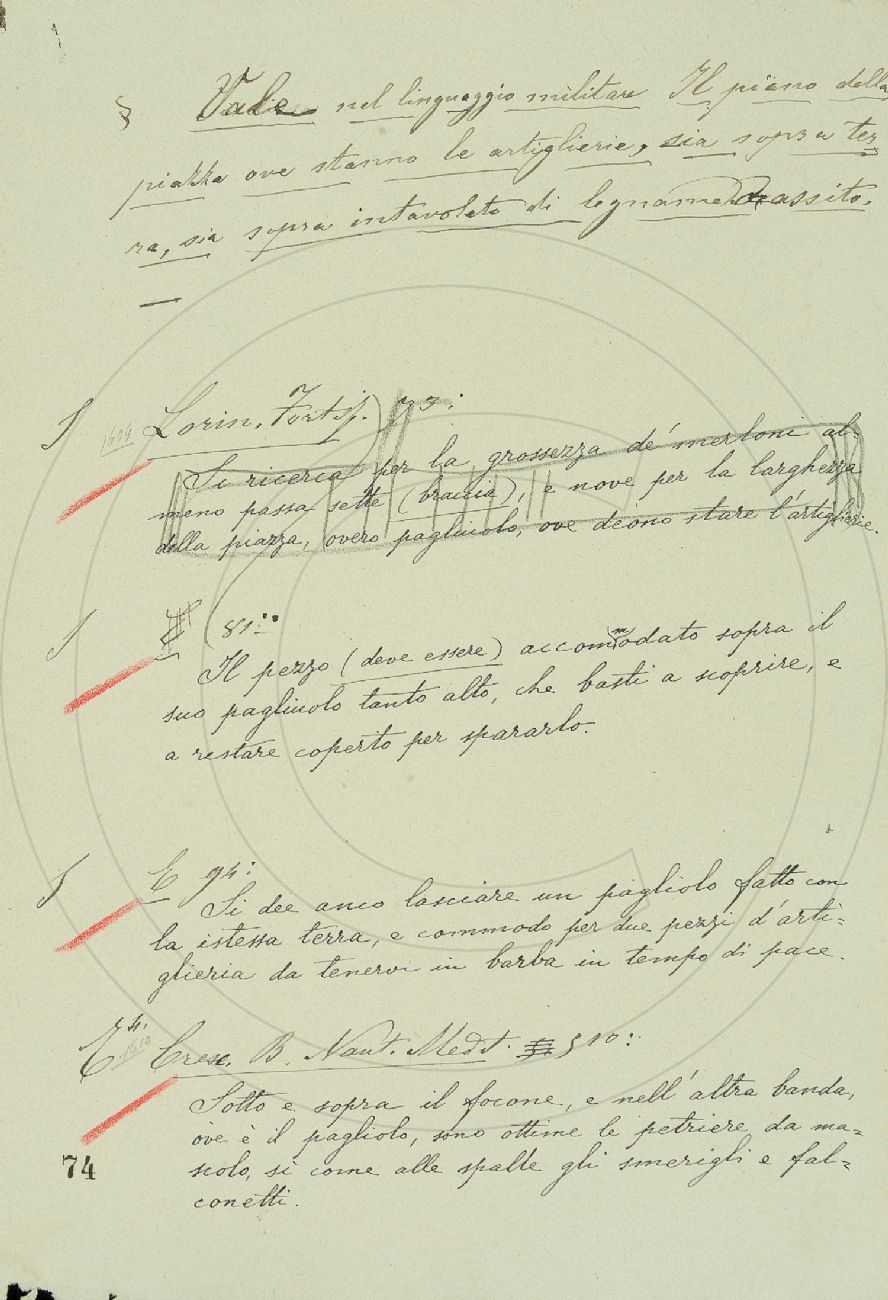 § Vale nel linguaggio militare Il piano della
piazza ove stanno le artiglierie, sia sopra ter
ra, sia sopra intavolato di legname assito.
—
1604 Lorin. Fortif. 73:
Si ricerca per la grossezza de' merloni al-
meno passa sette (braccia), e nove per la larghezza
della piazza, overo pagliuolo, ove deono stare l'artiglierie.
81:
Il pezzo (deve essere) accommodato sopra il
suo pagliuolo tanto alto, che basti a scoprire, e
a restare coperto per spararlo.
E 94:
Si dee anco lasciare un pagliolo fatto con
la istessa terra, e commodo per due pezzi d'arti=
glieria da tenervi in barba in tempo di pace.
1610 Cresc. B. Naut. Medit. 510:
Sotto e sopra il focone, e nell'altra banda,
òve è il pagliolo, sono ottime le petriere da ma=
scolo, si come alle spalle gli smerigli e fal=
conetti.
74